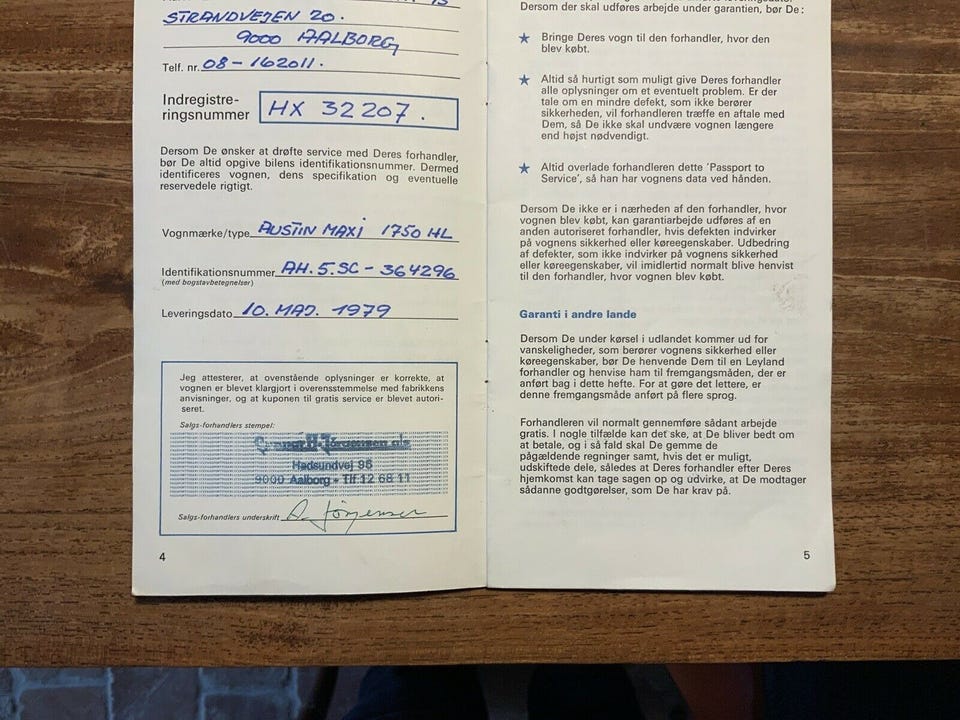 STRANDVEJEN 20.
9000 AALBORG
Telf. nr. 08-162011.
Indregistre-
ringsnummer HX 32207.
Dersom De ønsker at drøfte service med Deres forhandler,
bør De altid opgive bilens identifikationsnummer. Dermed
identificeres vognen, dens specifikation og eventuelle
reservedele rigtigt.
Vognmærke/type AUSTIN MAXI 1750 HL
Identifikationsnummer AH.5.SC-364296
(med bogstavbetegnelser)
Leveringsdato 10. MAJ. 1979
Jeg attesterer, at ovenstående oplysninger er korrekte, at
vognen er blevet klargjort i overensstemmelse med fabrikkens
anvisninger, og at kuponen til gratis service er blevet autori-
seret.
Salgs-forhandlers stempel:
H. Jørgensen a/s
Hadsundvej 95
9000 Aalborg • Tlf 12 68 11
Salgs-forhandlers underskrift Jørgensen
4
Dersom der skal udføres arbejde under garantien, bør De:
★ Bringe Deres vogn til den forhandler, hvor den
blev købt.
★ Altid så hurtigt som muligt give Deres forhandler
alle oplysninger om et eventuelt problem. Er der
tale om en mindre defekt, som ikke berører
sikkerheden, vil forhandleren træffe en aftale med
Dem, så De ikke skal undvære vognen længere
end højst nødvendigt.
★ Altid overlade forhandleren dette 'Passport to
Service', så han har vognens data ved hånden.
Dersom De ikke er i nærheden af den forhandler, hvor
vognen blev købt, kan garantiarbejde udføres af en
anden autoriseret forhandler, hvis defekten indvirker
på vognens sikkerhed eller køreegenskaber. Udbedring
af defekter, som ikke indvirker på vognens sikkerhed
eller køreegenskaber, vil imidlertid normalt blive henvist
til den forhandler, hvor vognen blev købt.
Garanti i andre lande
Dersom De under kørsel i udlandet kommer ud for
vanskeligheder, som berører vognens sikkerhed eller
køreegenskaber, bør De henvende Dem til en Leyland
forhandler og henvise ham til fremgangsmåden, der er
anført bag i dette hefte. For at gøre det lettere, er
denne fremgangsmåde anført på flere sprog.
Forhandleren vil normalt gennemføre sådant arbejde
gratis. I nogle tilfælde kan det ske, at De bliver bedt om
at betale, og i så fald skal De gemme de
pågældende regninger samt, hvis det er muligt,
udskiftede dele, således at Deres forhandler efter Deres
hjemkomst kan tage sagen op og udvirke, at De modtager
sådanne godtgørelser, som De har krav på.
5